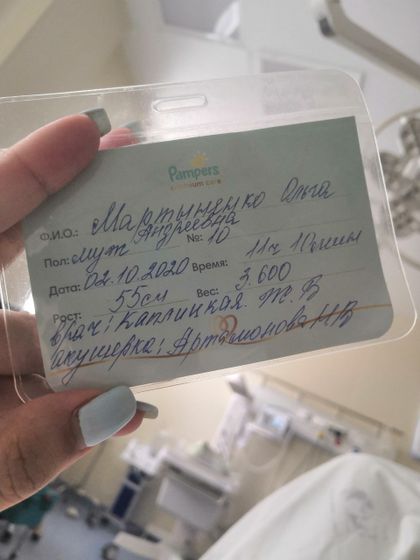 Pampers
premium care
Ф.И.О.: Мартыненко Ольга
Андреевна
Пол: муж №: 10
Дата: 02.10.2020 Время: 11ч 10мин
Рост: 55см Вес: 3.600
врач: Каплицкая Т.В
акушерка: Артамонова НВ